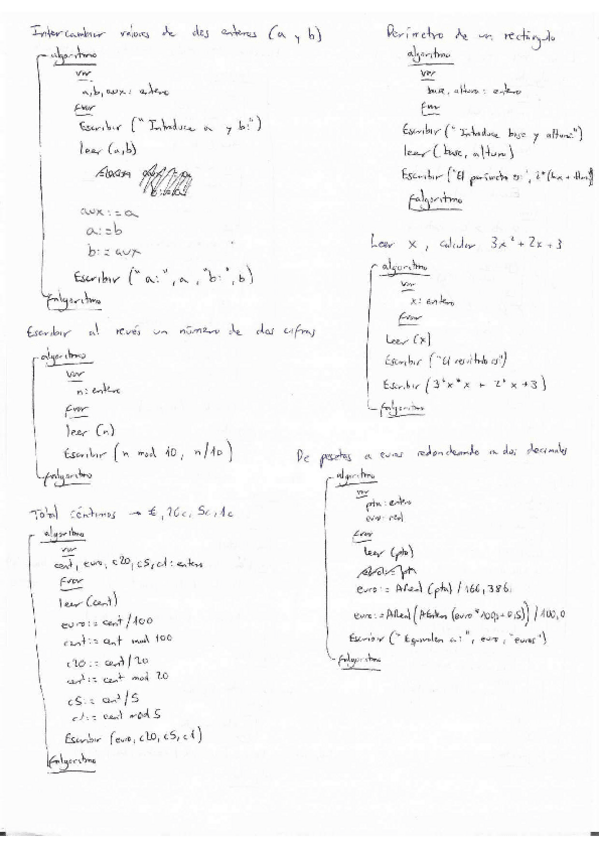 Intercambiar valores de dos enteros (a y b)
algoritmo
var
a,b,aux: entero
fvar
Escribir ("Introduce a y b:")
leer (a,b)
aux:=a
a:=b
b:=aux
Escribir ("a:", a, "b:", b)
falgoritmo
Escribir al revés un número de dos cifras
algoritmo
var
n: entero
fvar
leer (n)
Escribir (n mod 10, n/10)
falgoritmo
Total céntimos → €, 20c, 5c, 1c
algoritmo
var
cent, euro, c20, c5, c1: entero
fvar
leer (cent)
euro:= cent/100
cent:= cent mod 100
c20:= cent/20
cent:= cent mod 20
c5:= cent/5
c1:= cent mod 5
Escribir (euro, c20, c5, c1)
falgoritmo
Perímetro de un rectángulo
algoritmo
var
base, altura: entero
fvar
Escribir ("Introduce base y altura:")
leer (base, altura)
Escribir ("El perímetro es:", 2*(
falgoritmo
Leer x, calcular 3x²+2x+3
algoritmo
var
x: entero
fvar
Leer (x)
Escribir ("El resultado es")
Escribir (3*x*x + 2*x+3)
falgoritmo
De pesetas a euros redondeando a dos decimales
algoritmo
var
pta: entero
euro: real
fvar
leer (pta)
euro:= AReal (pta) / 166,386
euro:= AReal(AEntero (euro*100,0+0,5)) / 100,0
Escribir ("Equivalen a:", euro, "euros")
falgoritmo